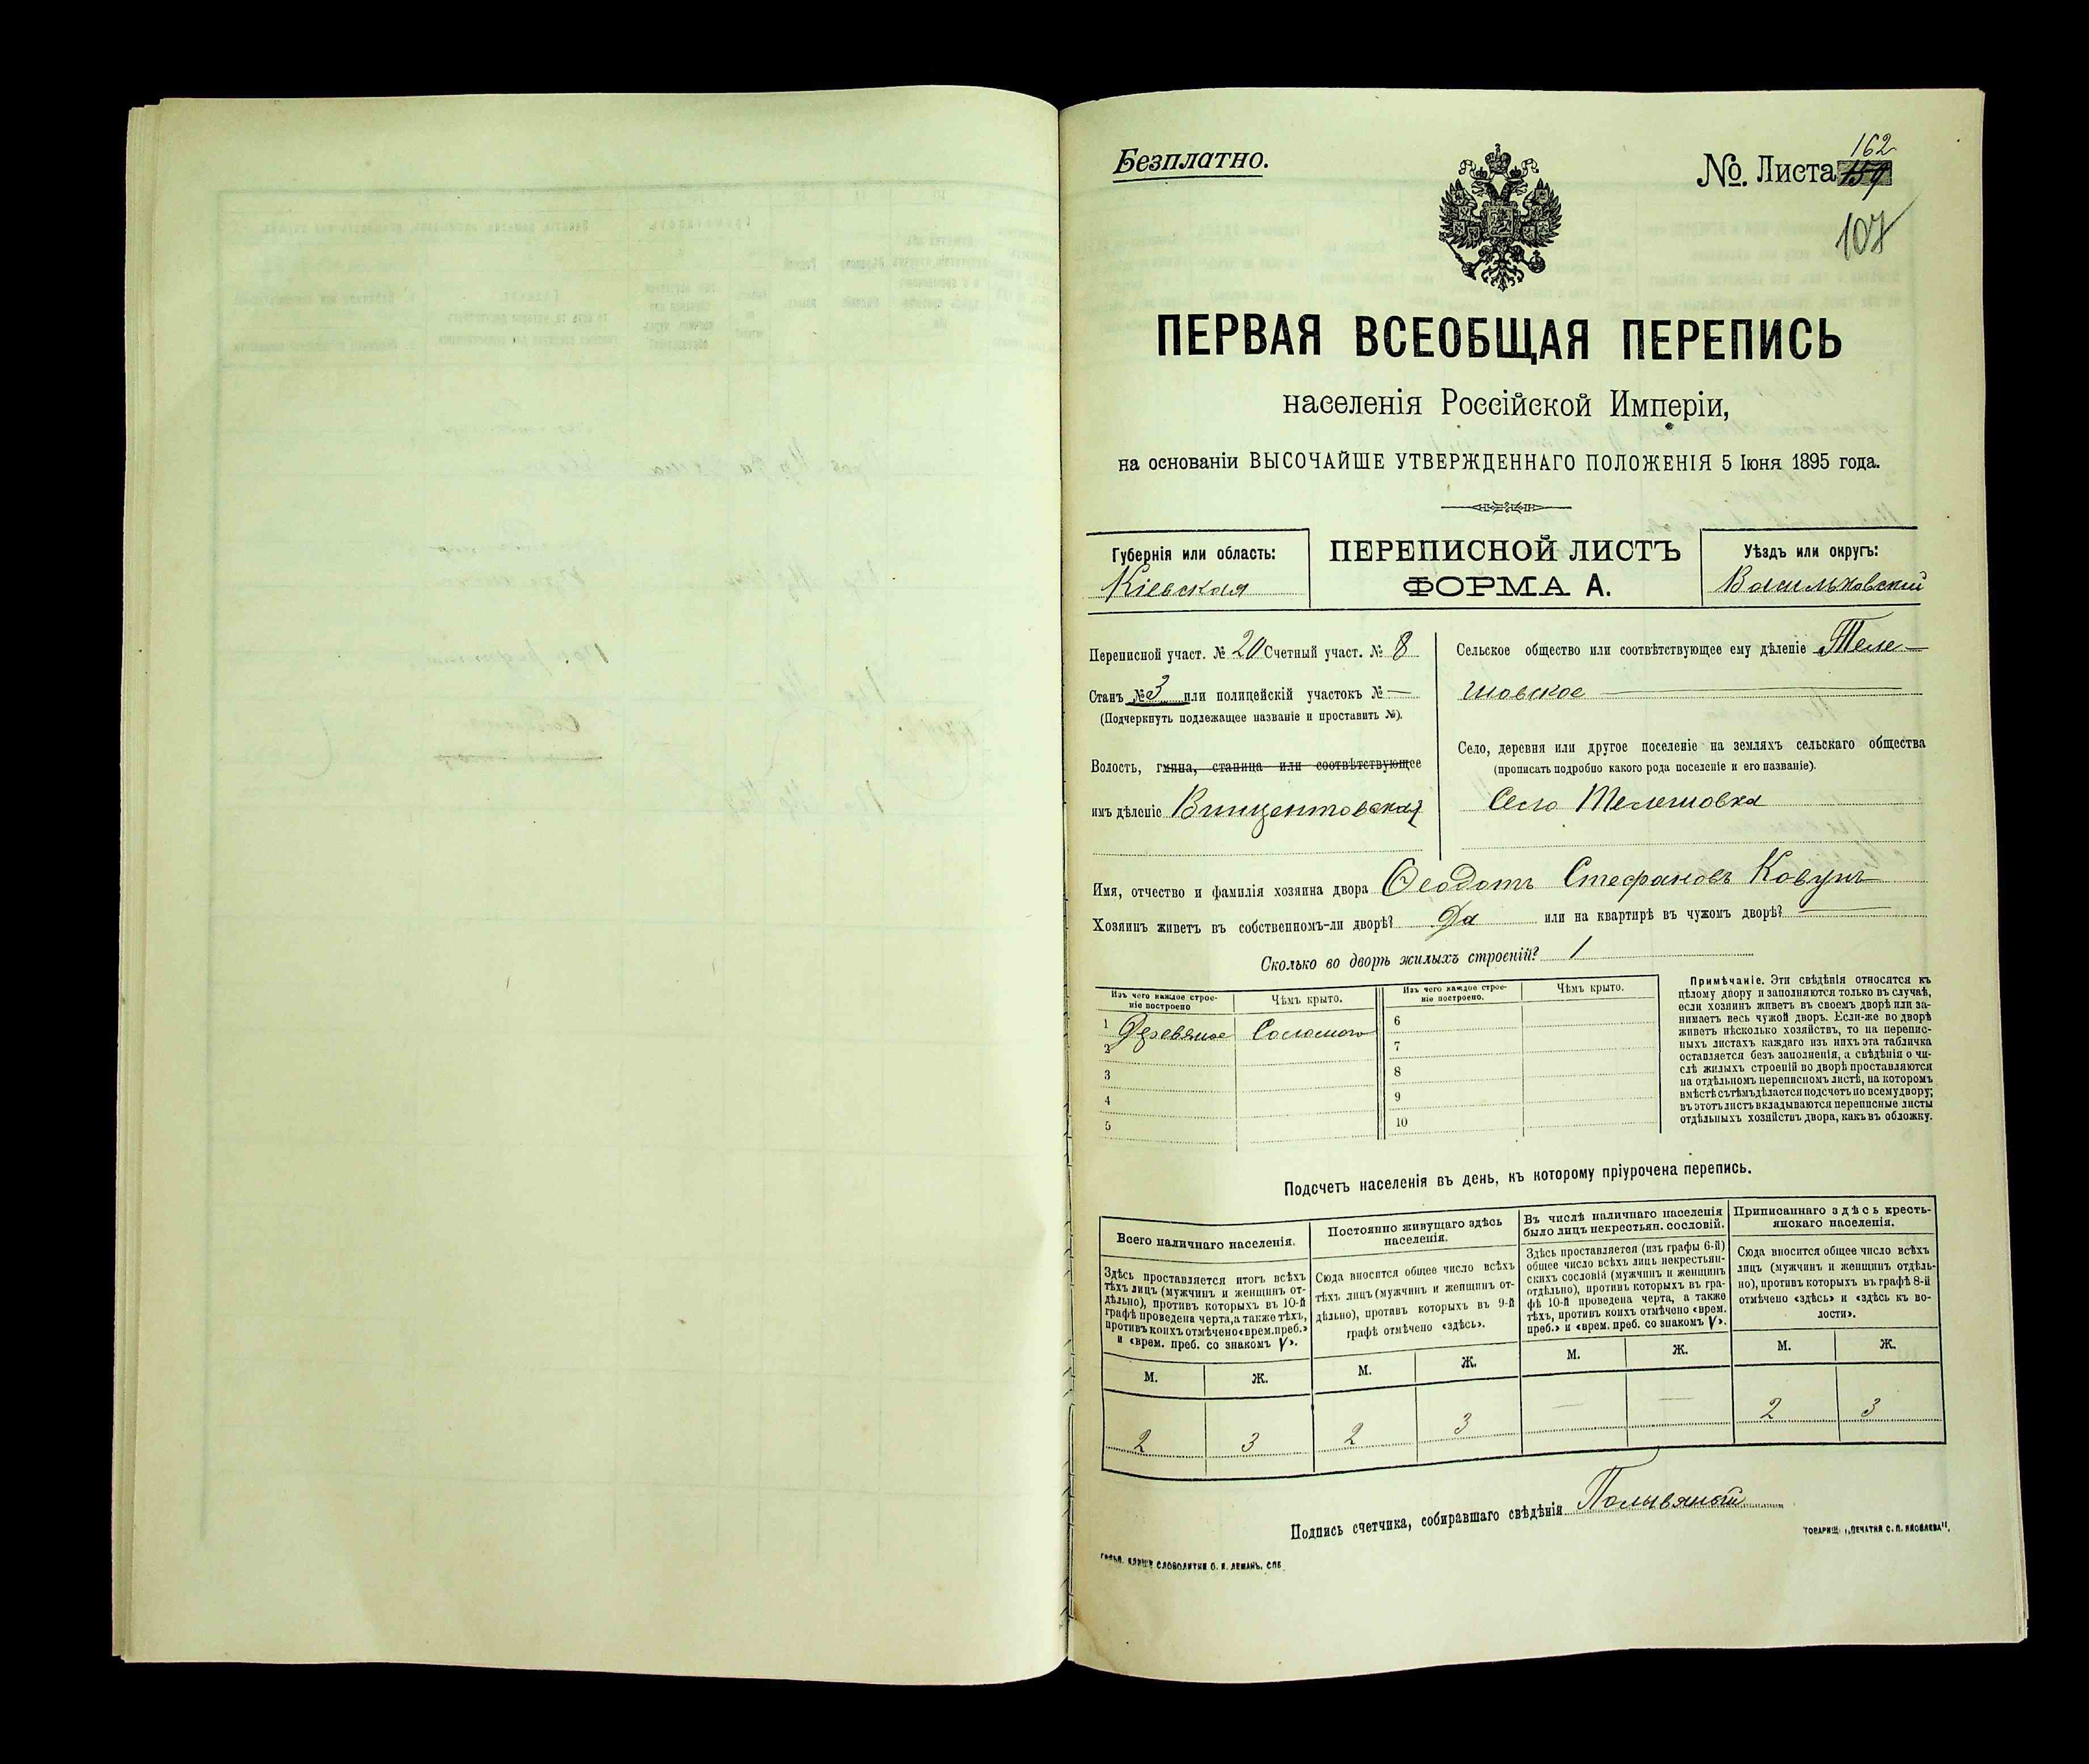 Безплатно.
№. Листа 159
162
107
ПЕРВАЯ ВСЕОБЩАЯ ПЕРЕПИСЬ
населенія Россійской Имперіи,
на основаніи ВЫСОЧАЙШЕ УТВЕРЖДЕННАГО ПОЛОЖЕНІЯ 5 Іюня 1895 года.
Губернія или область:
Кіевская
ПЕРЕПИСНОЙ ЛИСТЪ
ФОРМА А.
Уѣздъ или округъ:
Васильковский
Переписной участ. № 20 Счетный участ. № 8
Станъ № 3 или полицейскій участокъ № —
(Подчеркнуть подлежащее названіе и проставить №).
Волость, гмина, станица или соотвѣтствующее
имъ дѣленіе Винцентовская
Сельское общество или соотвѣтствующее ему дѣленіе Теле-
шовское
Село, деревня или другое поселеніе на земляхъ сельскаго общества
(прописать подробно какого рода поселеніе и его названіе).
Село Телешовка
Имя, отчество и фамилія хозяина двора Ѳеодотъ Стефановъ Ковунъ
Хозяинъ живетъ въ собственномъ-ли дворѣ? Да или на квартирѣ въ чужомъ дворѣ? —
Сколько во дворѣ жилыхъ строеній? 1
Изъ чего каждое строе-
ніе построено
Чѣмъ крыто.
Изъ чего каждое строе-
ніе построено.
Чѣмъ крыто.
1 Деревяное Соломою
2
3
4
5
6
7
8
9
10
Примѣчаніе. Эти свѣдѣнія относятся къ
цѣлому двору и заполняются только въ случаѣ,
если хозяинъ живетъ въ своемъ дворѣ или за-
нимаетъ весь чужой дворъ. Если-же во дворѣ
живетъ нѣсколько хозяйствъ, то на перепис-
ныхъ листахъ каждаго изъ нихъ эта табличка
оставляется безъ заполненія, а свѣдѣнія о чи-
слѣ жилыхъ строеній во дворѣ проставляются
на отдѣльномъ переписномъ листѣ, на которомъ
вмѣстѣ съ тѣмъ дѣлается подсчетъ по всему двору;
въ этотъ листъ вкладываются переписные листы
отдѣльныхъ хозяйствъ двора, какъ въ обложку.
Подсчетъ населенія въ день, къ которому пріурочена перепись.
Всего наличнаго населенія.
Здѣсь проставляется итогъ всѣхъ
тѣхъ лицъ (мужчинъ и женщинъ от-
дѣльно), противъ которыхъ въ 10-й
графѣ проведена черта, а также тѣхъ,
противъ коихъ отмѣчено «врем. преб.»
и «врем. преб. со знакомъ V».
М. Ж.
2 3
Постоянно живущаго здѣсь
населенія.
Сюда вносится общее число всѣхъ
тѣхъ лицъ (мужчинъ и женщинъ от-
дѣльно), противъ которыхъ въ 9-й
графѣ отмѣчено «здѣсь».
М. Ж.
2 3
Въ числѣ наличнаго населенія
было лицъ некрестьян. сословій.
Здѣсь проставляется (изъ графы 6-й)
общее число всѣхъ лицъ некрестьян-
скихъ сословій (мужчинъ и женщинъ
отдѣльно), противъ которыхъ въ гра-
фѣ 10-й проведена черта, а также
тѣхъ, противъ коихъ отмѣчено «врем.
преб.» и «врем. преб. со знакомъ V».
М. Ж.
— —
Приписаннаго здѣсь кресть-
янскаго населенія.
Сюда вносится общее число всѣхъ
лицъ (мужчинъ и женщинъ отдѣль-
но), противъ которыхъ въ графѣ 8-й
отмѣчено «здѣсь» и «здѣсь къ во-
лости».
М. Ж.
2 3
Подпись счетчика, собиравшаго свѣдѣнія Полывяный
СЛОВОЛИТНИ О. И. ЛЕМАНЪ. СПБ
ТОВАРИЩ. „ПЕЧАТНЯ С. П. ЯКОВЛЕВА“.